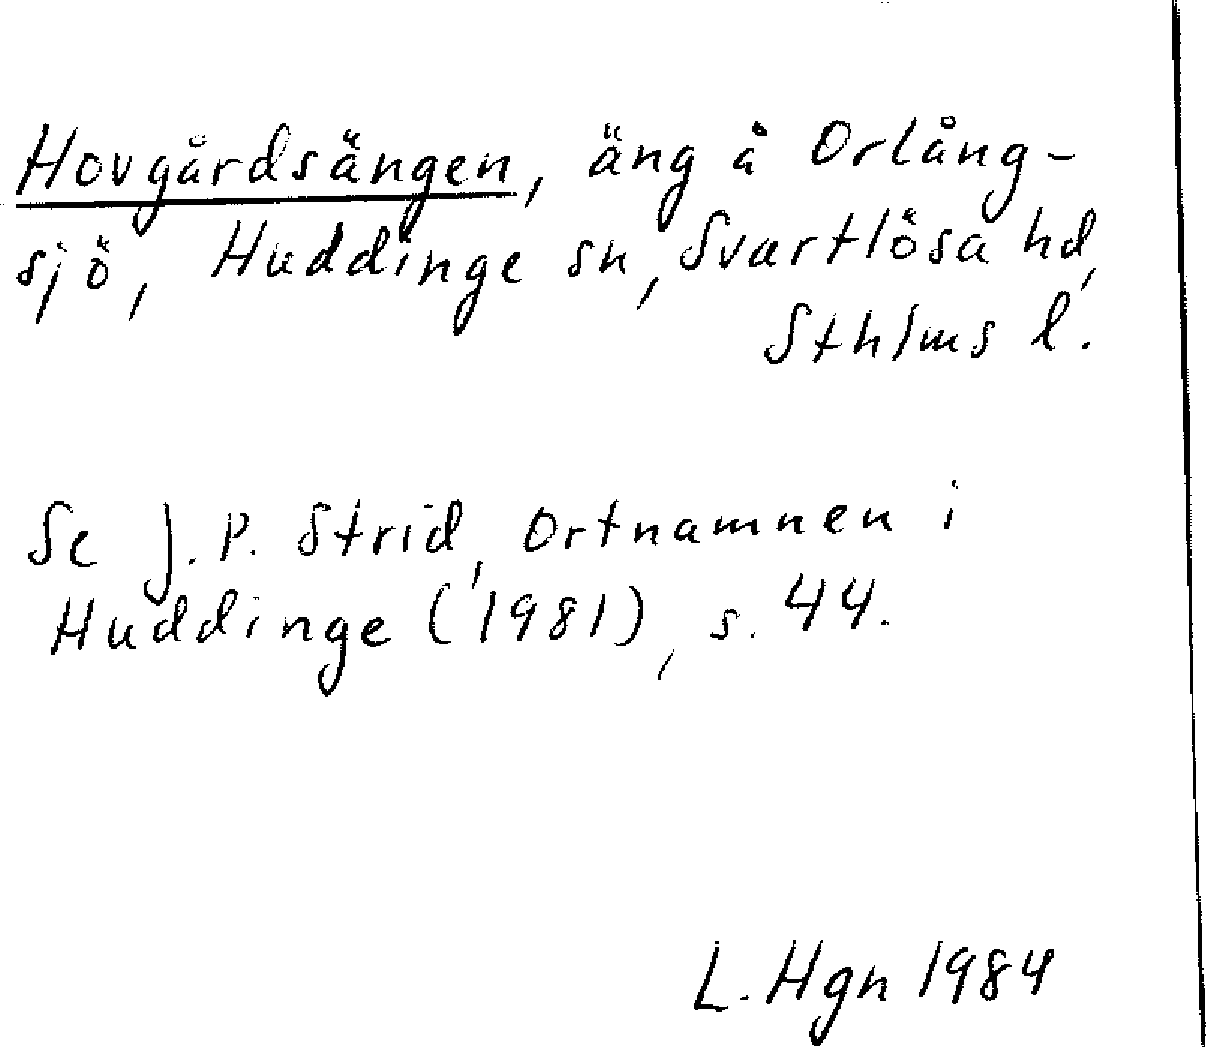 Hovgårdsängen, äng å Orlång-
sjö, Huddinge sn, Svartlösa hd,
Sthlms l.
Se J. P. Strid, Ortnamnen i
Huddinge (1981), s. 44.
L. Hgn 1984